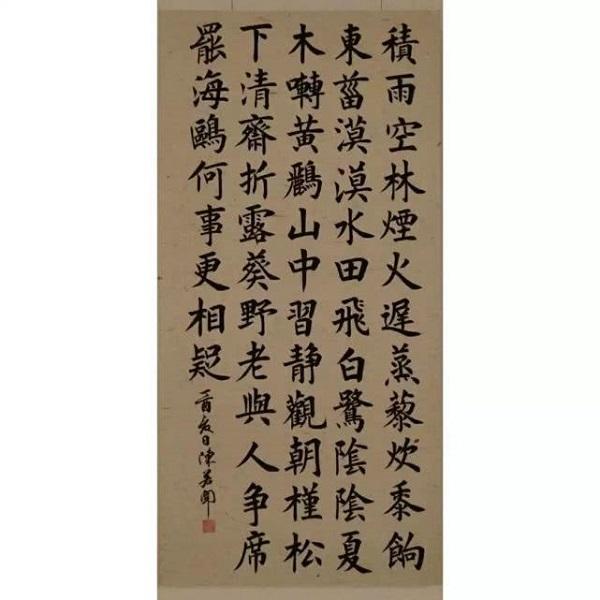 積雨空林煙火遲蒸藜炊黍餉
東菑漠漠水田飛白鷺陰陰夏
木囀黃鸝山中習靜觀朝槿松
下清齋折露葵野老與人争席
罷海鷗何事更相疑
酉夏日陳